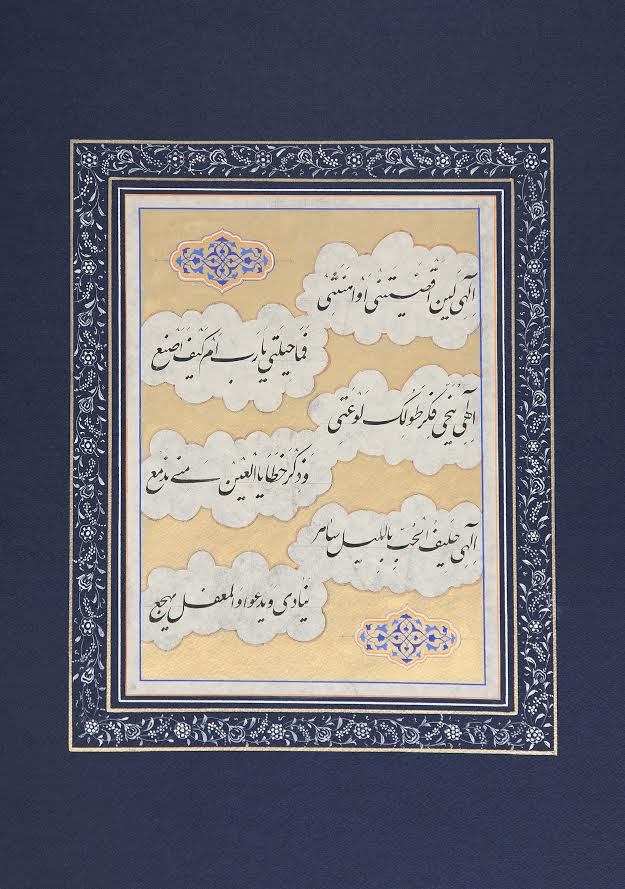 الهی لین اقصیتنی او اهنتنی
فما حیلتی یا رب ام کیف اصنع
الهی ینحی ذکر طولک لوعتی
و ذکر خطایا العین منی یدمع
الهی حلیف الحب باللیل ساهر
ینادی و یدعوا والمغفل یهجع